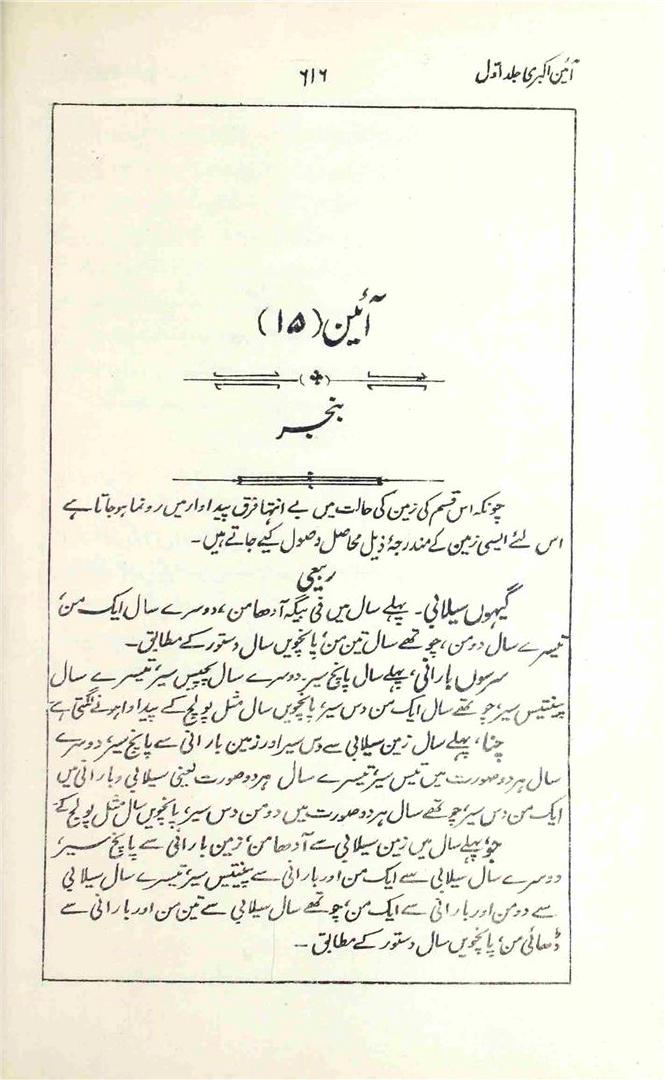 آئین اکبری جلد اول
۶۱۶
آئین (۱۵)
بنجر
چونکہ اس قسم کی زمین کی حالت میں بے انتہا فرق پیداوار میں رونما ہو جاتا ہے
اس لئے ایسی زمین کے مندرجۂ ذیل محاصل وصول کیے جاتے ہیں۔
ربیعی
گیہوں سیلابی۔ پہلے سال میں فی بیگہ آدھا من، دوسرے سال ایک من،
تیسرے سال دو من، چوتھے سال تین من، پانچویں سال دستور کے مطابق۔
سرسوں بارانی، پہلے سال پانچ سیر۔ دوسرے سال پچیس سیر، تیسرے سال
پینتیس سیر، چوتھے سال ایک من دس سیر، پانچویں سال مثل پولج کے پیداوار ہونے لگتی ہے
چنا، پہلے سال زمین سیلابی سے دس سیر اور زمین بارانی سے پانچ سیر، دوسرے
سال ہر دو صورت میں تیس سیر، تیسرے سال ہر دو صورت یعنی سیلابی و بارانی میں
ایک من دس سیر، چوتھے سال ہر دو صورت میں دو من دس سیر، پانچویں سال مثل پولج کے
جو، پہلے سال میں زمین سیلابی سے آدھا من، زمین بارانی سے پانچ سیر،
دوسرے سال سیلابی سے ایک من اور بارانی سے پینتیس سیر، تیسرے سال سیلابی
سے دو من اور بارانی سے ایک من، چوتھے سال سیلابی سے تین من اور بارانی سے
ڈھائی من، پانچویں سال دستور کے مطابق۔